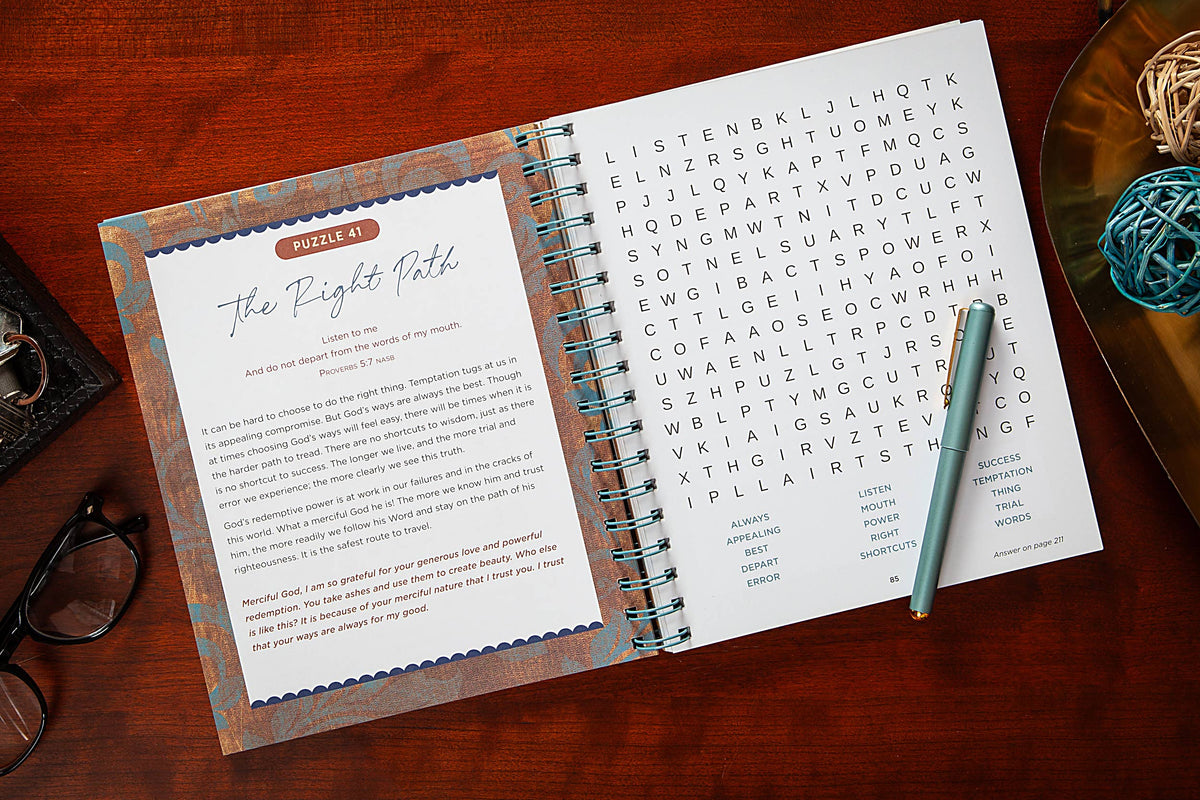 PUZZLE 41
The Right Path
Listen to me
And do not depart from the words of my mouth.
PROVERBS 5:7 NASB
It can be hard to choose to do the right thing. Temptation tugs at us in
its appealing compromise. But God's ways are always the best. Though
at times choosing God's ways will feel easy, there will be times when it is
the harder path to tread. There are no shortcuts to wisdom, just as there
is no shortcut to success. The longer we live, and the more trial and
error we experience; the more clearly we see this truth.
God's redemptive power is at work in our failures and in the cracks of
this world. What a merciful God he is! The more we know him and trust
him, the more readily we follow his Word and stay on the path of his
righteousness. It is the safest route to travel.
Merciful God, I am so grateful for your generous love and powerful
redemption. You take ashes and use them to create beauty. Who else
is like this? It is because of your merciful nature that I trust you. I trust
that your ways are always for my good.
L I S T E N B K L J L H Q T K
E L N Z R S G H T U O M E Y K
P J J L Q Y K A P T F M Q C S
H Q D E P A R T X V P D U A G
S Y N G M W T N I T D C U C W
S O T N E L S U A R Y T L F T
E W G I B A C T S P O W E R X
C T T L G E I I H Y A O F O I
C O F A A O S E O C W R H H H
U W A E N L L T R P C D B
S Z H P U Z L G T J R S E
W B L P T Y M G C U T R U T
V K I A I G S A U K R Y Q
X T H G I R V Z T E V T C O
I P L L A I R T S T H N G F
ALWAYS
APPEALING
BEST
DEPART
ERROR
LISTEN
MOUTH
POWER
RIGHT
SHORTCUTS
SUCCESS
TEMPTATION
THING
TRIAL
WORDS
85
Answer on page 211